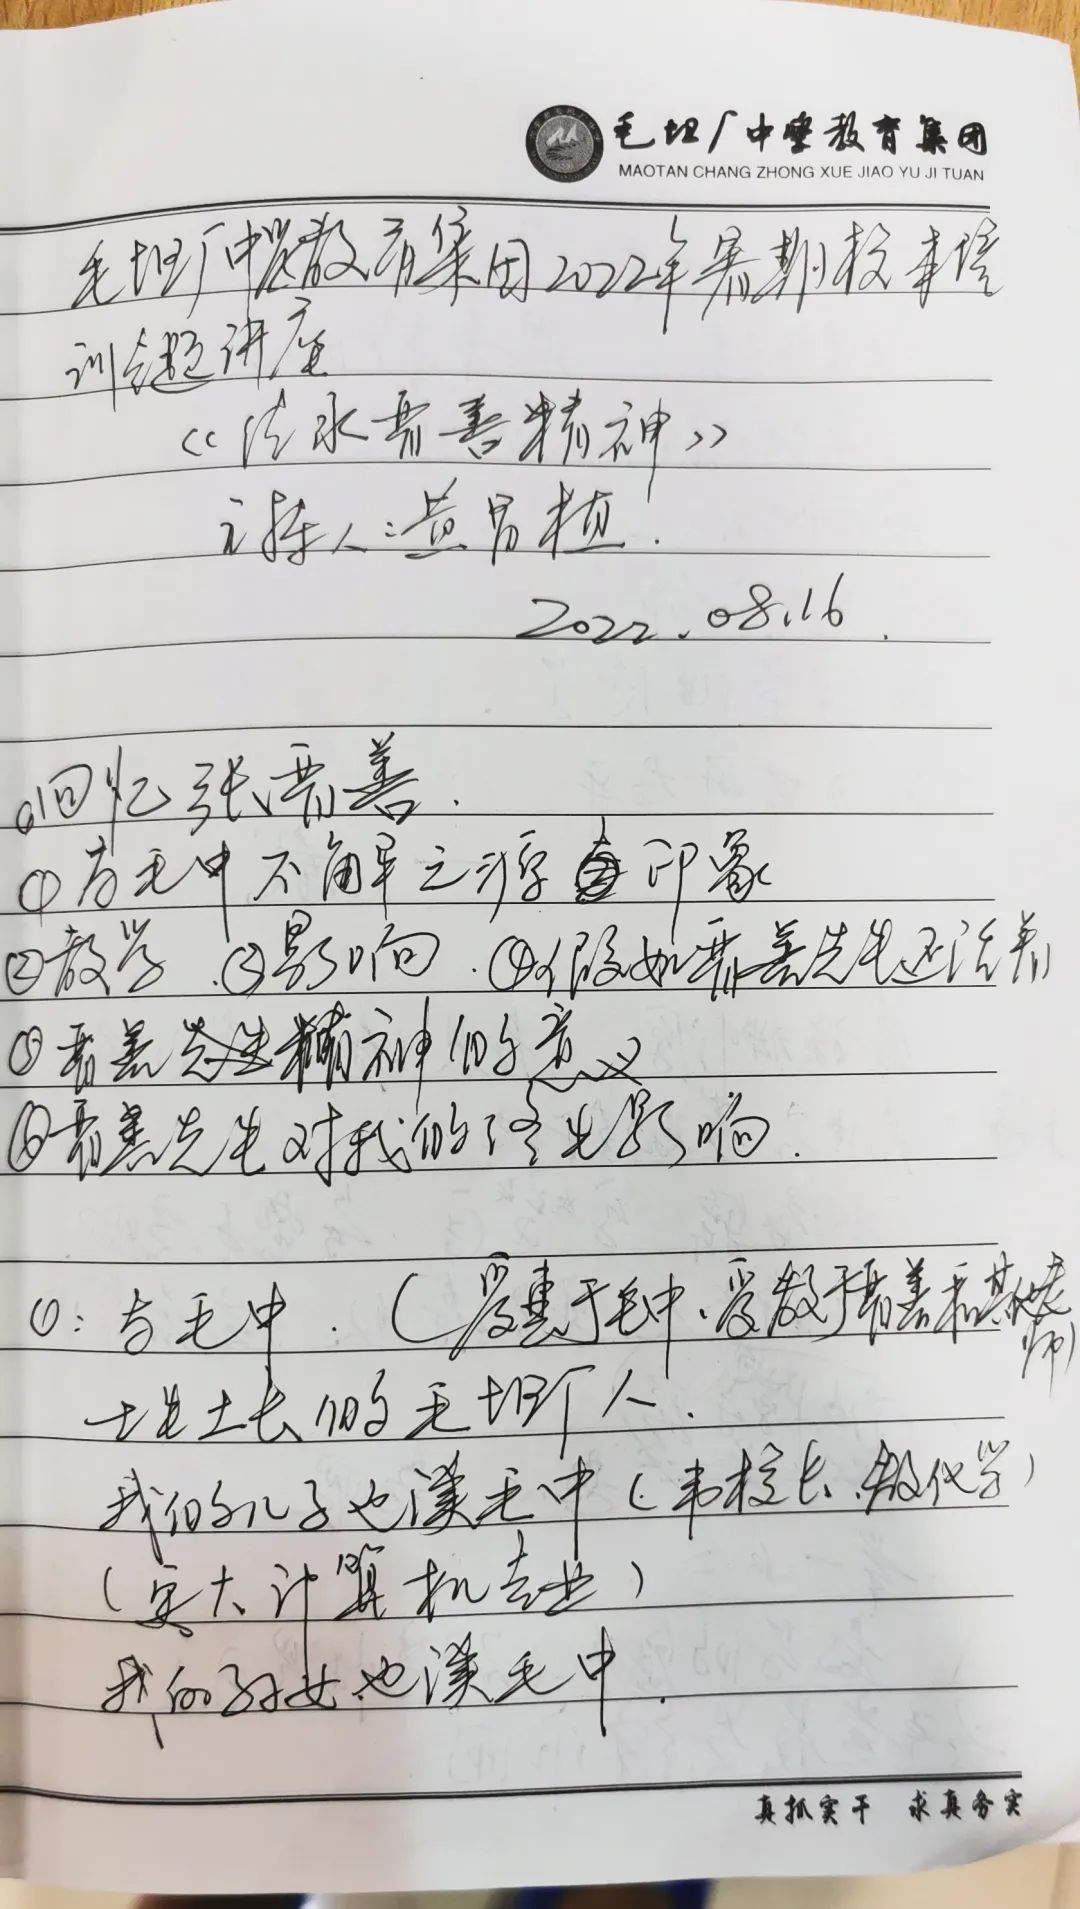 毛坦厂中学教育集团
MAOTAN CHANG ZHONG XUE JIAO YU JI TUAN
毛坦厂中学教育集团2022年暑期校本培
训专题讲座
《传承晋善精神》
主持人:黄
2022.08.16
回忆张晋善.
①与毛中不解之 印象
②教学.③影响.④假如晋善先生还活着
⑤晋善先生精神的意义
⑥晋善先生对我的终生影响.
①:与毛中.(受惠于毛中、受教于晋善和其他老师)
土生土长的毛坦厂人.
我的儿子也读毛中(韦校长.教化学)
(安大计算机专业)
我的孙女也读毛中.
真抓实干 求真务实